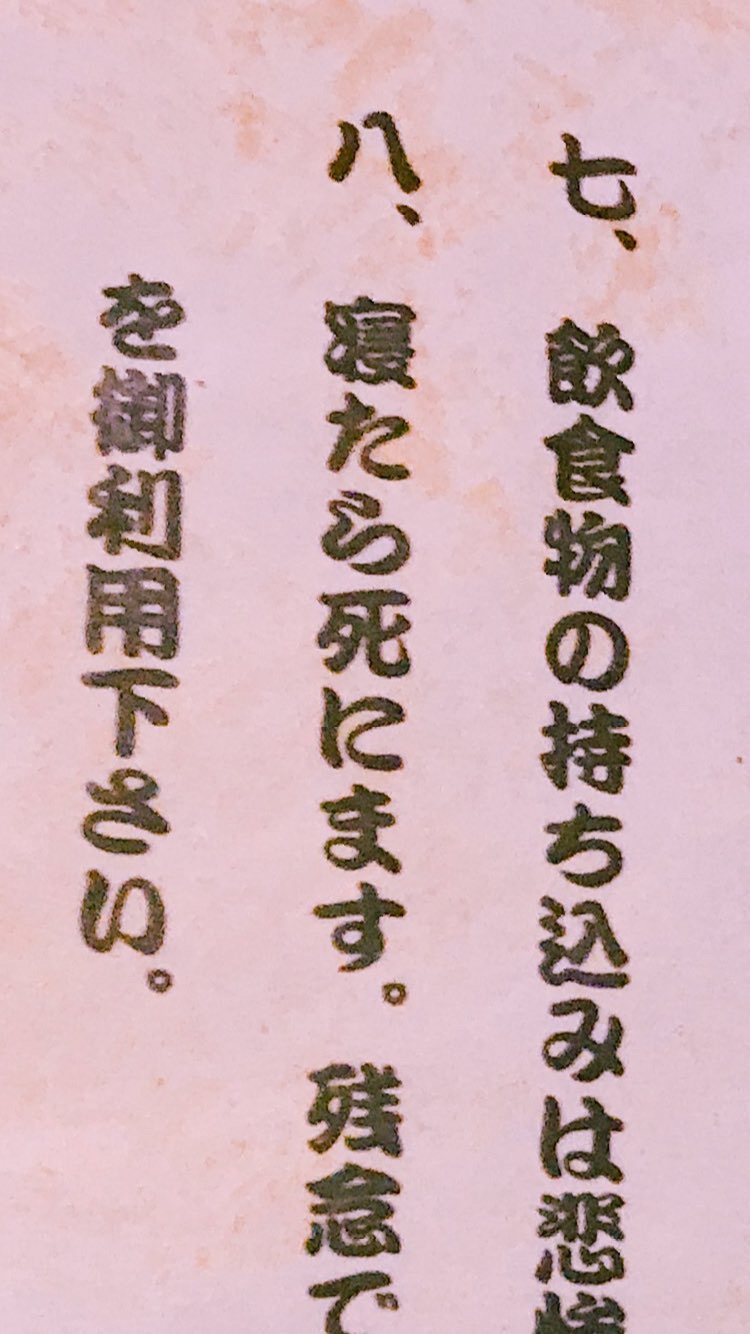 七、飲食物の持ち込みは悲
八、寝たら死にます。残念で
を御利用下さい。